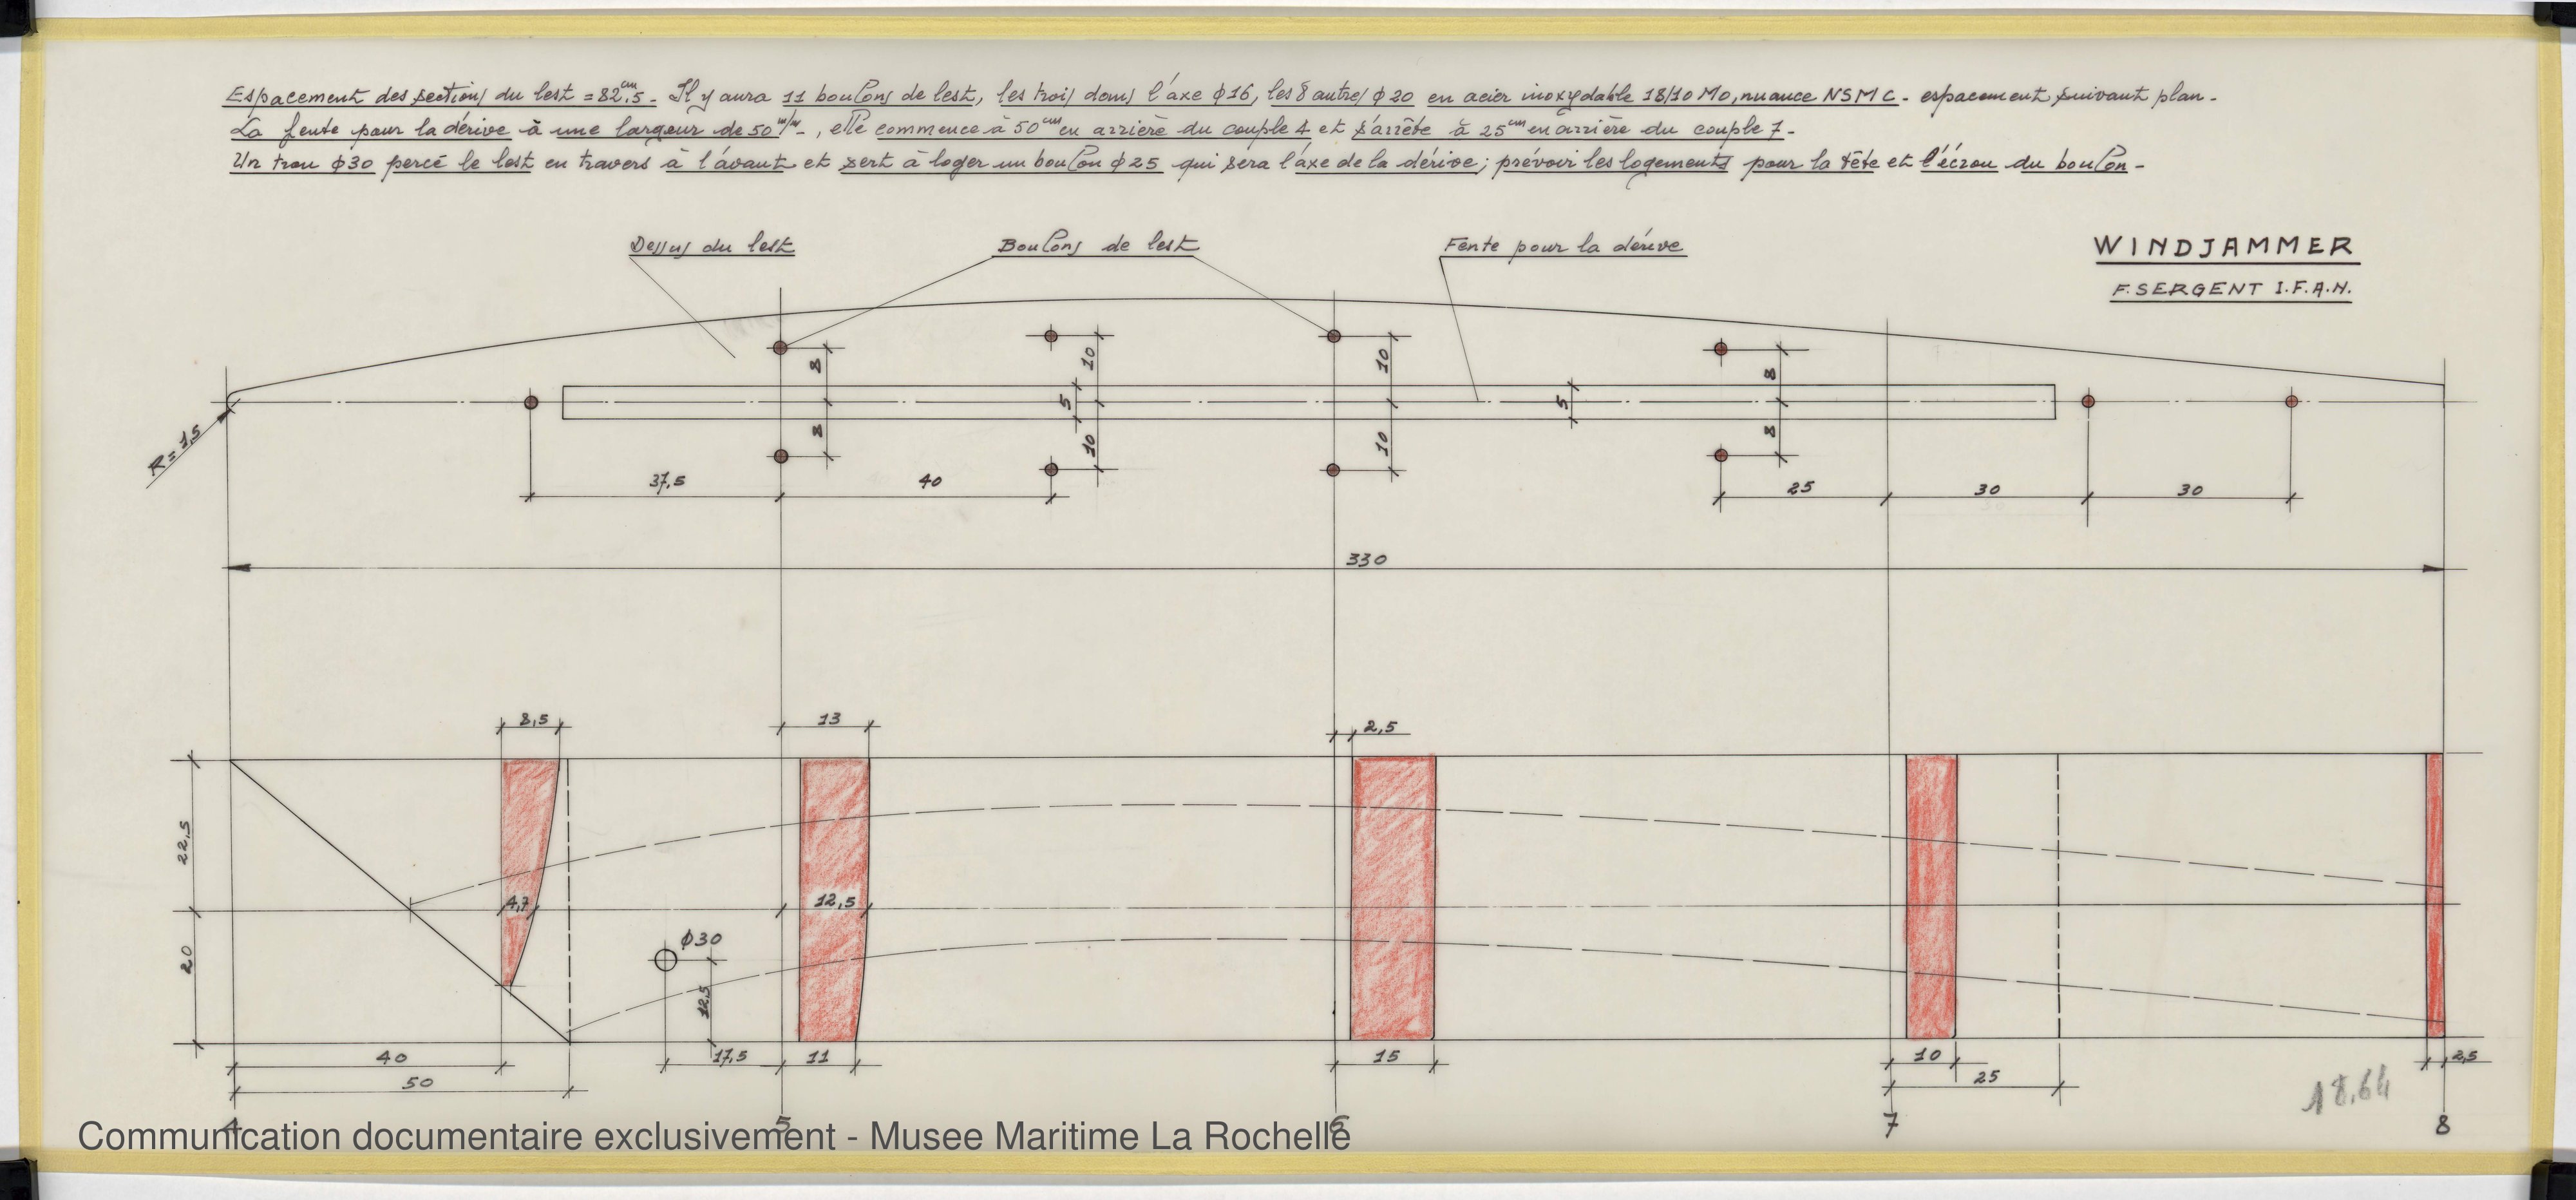 Espacement des sections du lest = 82cm,5. Il y aura 11 boulons de lest, les trois dans l'áxe φ16, les 8 autres φ 20 en acier inoxydable 18/10 Mo, nuance NSMC - espacement suivant plan -
La fente pour la dérive à une largeur de 50 m/m -, elle commence à 50cm en arrière du couple 4 et s'arrête à 25cm en arrière du couple 7 -
Un trou φ30 percé le lest en travers à l'ávant et sert à loger un boulon φ25 qui sera l'áxe de la dérive; prévoir les logements pour la tête et l'écrou du boulon -
Dessus du lest
Boulons de lest
Fente pour la dérive
WINDJAMMER
F. SERGENT I.F.A.N.
R = 1,5
8
8
10
5
10
10
10
5
8
8
37,5
40
25
30
30
330
8,5
13
2,5
22,5
20
4,7
12,5
φ30
12,5
40
50
17,5
11
15
10
25
2,5
18.64
4
5
6
7
8
Communication documentaire exclusivement - Musee Maritime La Rochelle